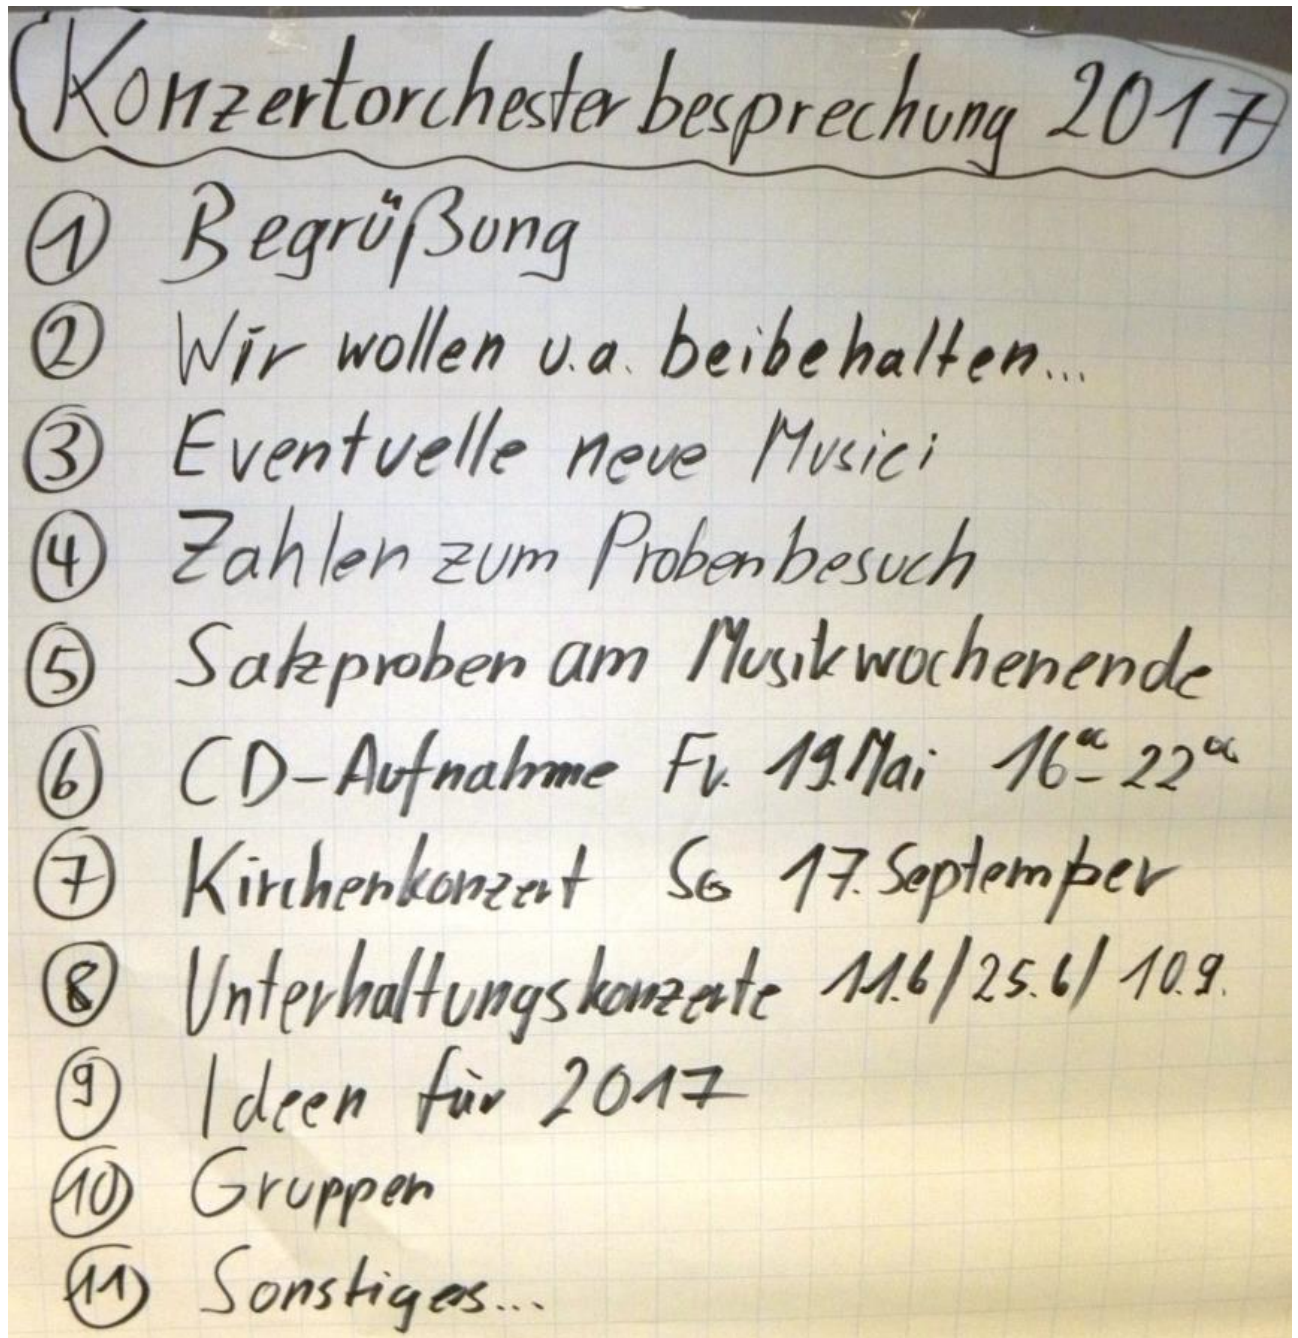 Konzertorchesterbesprechung 2017
① Begrüßung
② Wir wollen u.a. beibehalten...
③ Eventuelle neue Musici
④ Zahlen zum Probenbesuch
⑤ Satzproben am Musikwochenende
⑥ CD-Aufnahme Fr. 19.Mai 16°° - 22°°
⑦ Kirchenkonzert So 17. September
⑧ Unterhaltungskonzerte 11.6/25.6/10.9.
⑨ Ideen für 2017
⑩ Gruppen
⑪ Sonstiges...